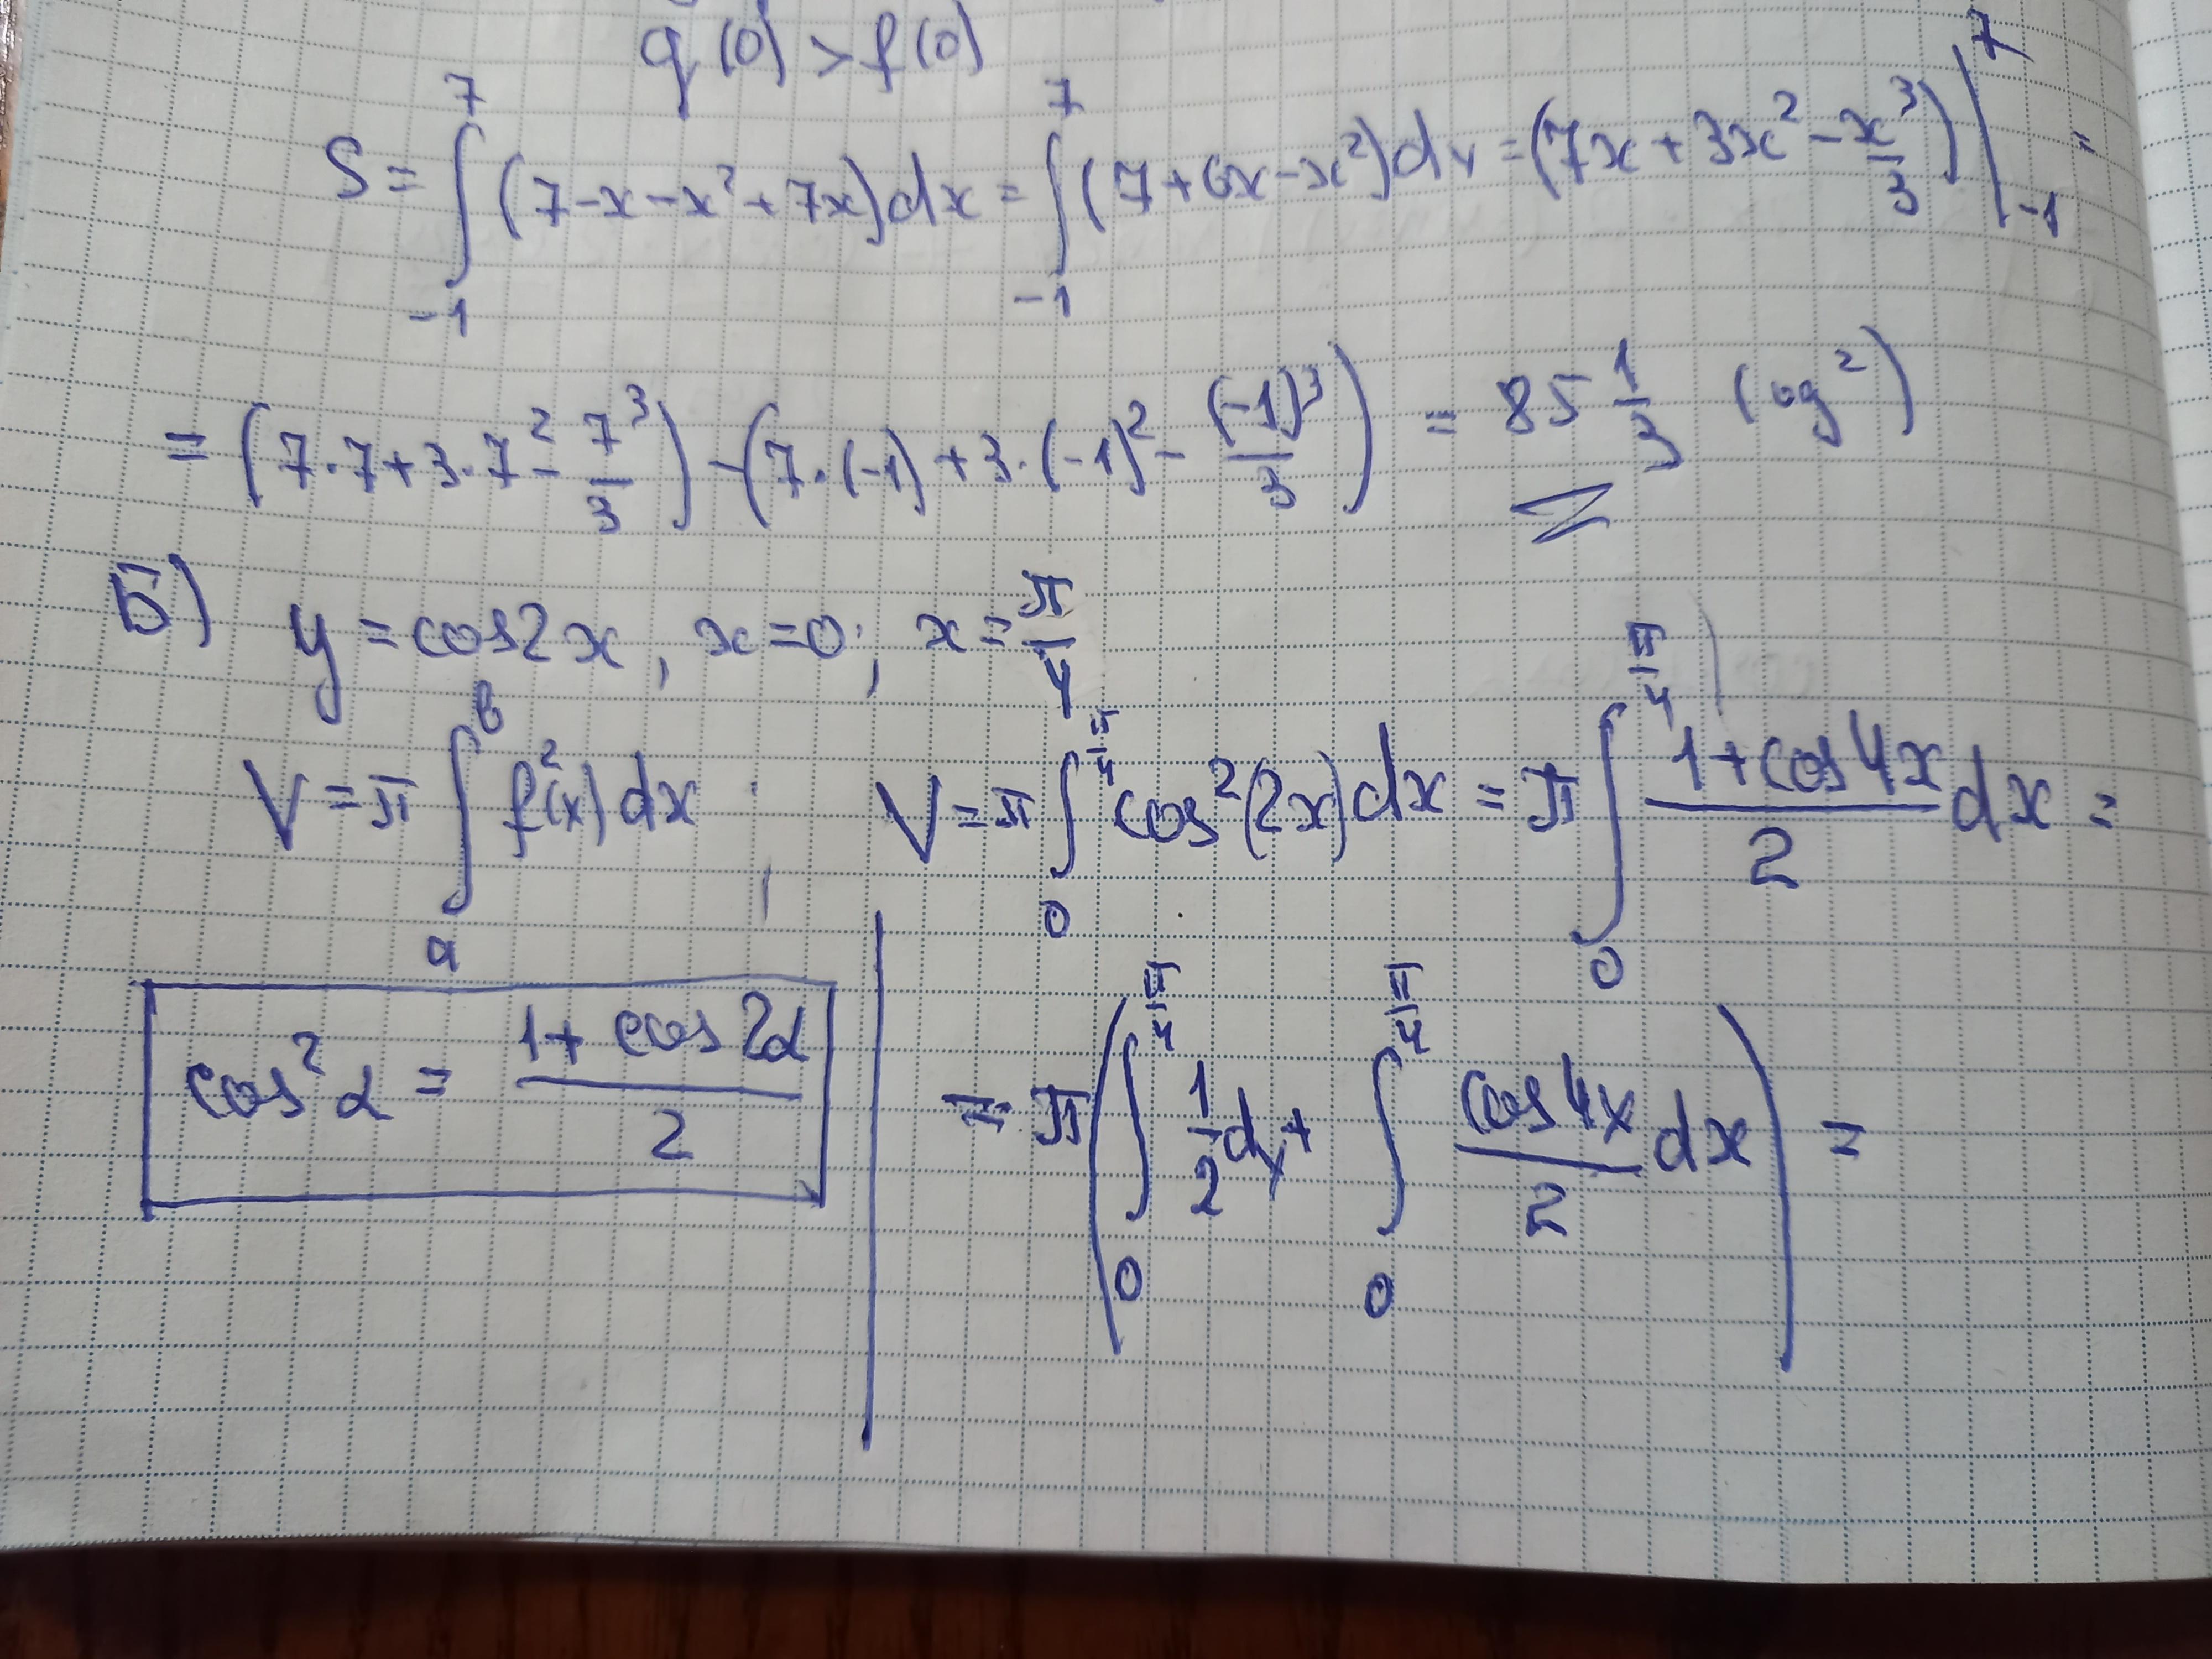 g(0) > f(0)
S = ∫₋₁⁷ (7-x-x²+7x)dx = ∫₋₁⁷ (7+6x-x²)dx = (7x+3x²-x³/3)|₋₁⁷ =
= (7·7+3·7²-7³/3)-(7·(-1)+3·(-1)²-(-1)³/3) = 85 1/3 (од²)
Б) y = cos2x, x=0; x=π/4
V = π ∫ₐᵇ f²(x)dx; V = π ∫₀^(π/4) cos²(2x)dx = π ∫₀^(π/4) (1+cos4x)/2 dx =
cos²α = (1+cos2α)/2
= π(∫₀^(π/4) 1/2 dx + ∫₀^(π/4) cos4x/2 dx) =